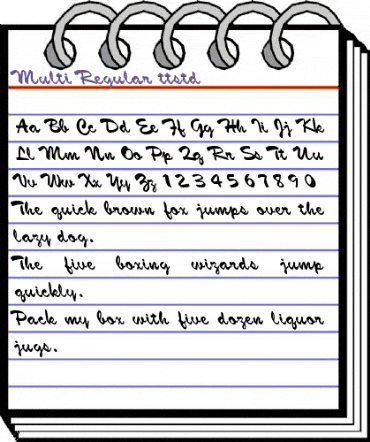 Multi Regular ttstd
Aa Bb Cc Dd Ee Ff Gg Hh Ii Jj Kk
Ll Mm Nn Oo Pp Qq Rr Ss Tt Uu
Vv Ww Xx Yy Zz 1 2 3 4 5 6 7 8 9 0
The quick brown fox jumps over the
lazy dog.
The five boxing wizards jump
quickly.
Pack my box with five dozen liquor
jugs.